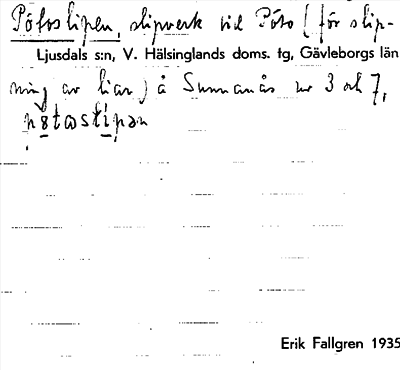 Pötosslipen, slipverk vid Pöto (för slip-
Ljusdals s:n, V. Hälsinglands doms. tg, Gävleborgs län
ning av liar) å Sunnanås nr 3 och 7,
Erik Fallgren 1935